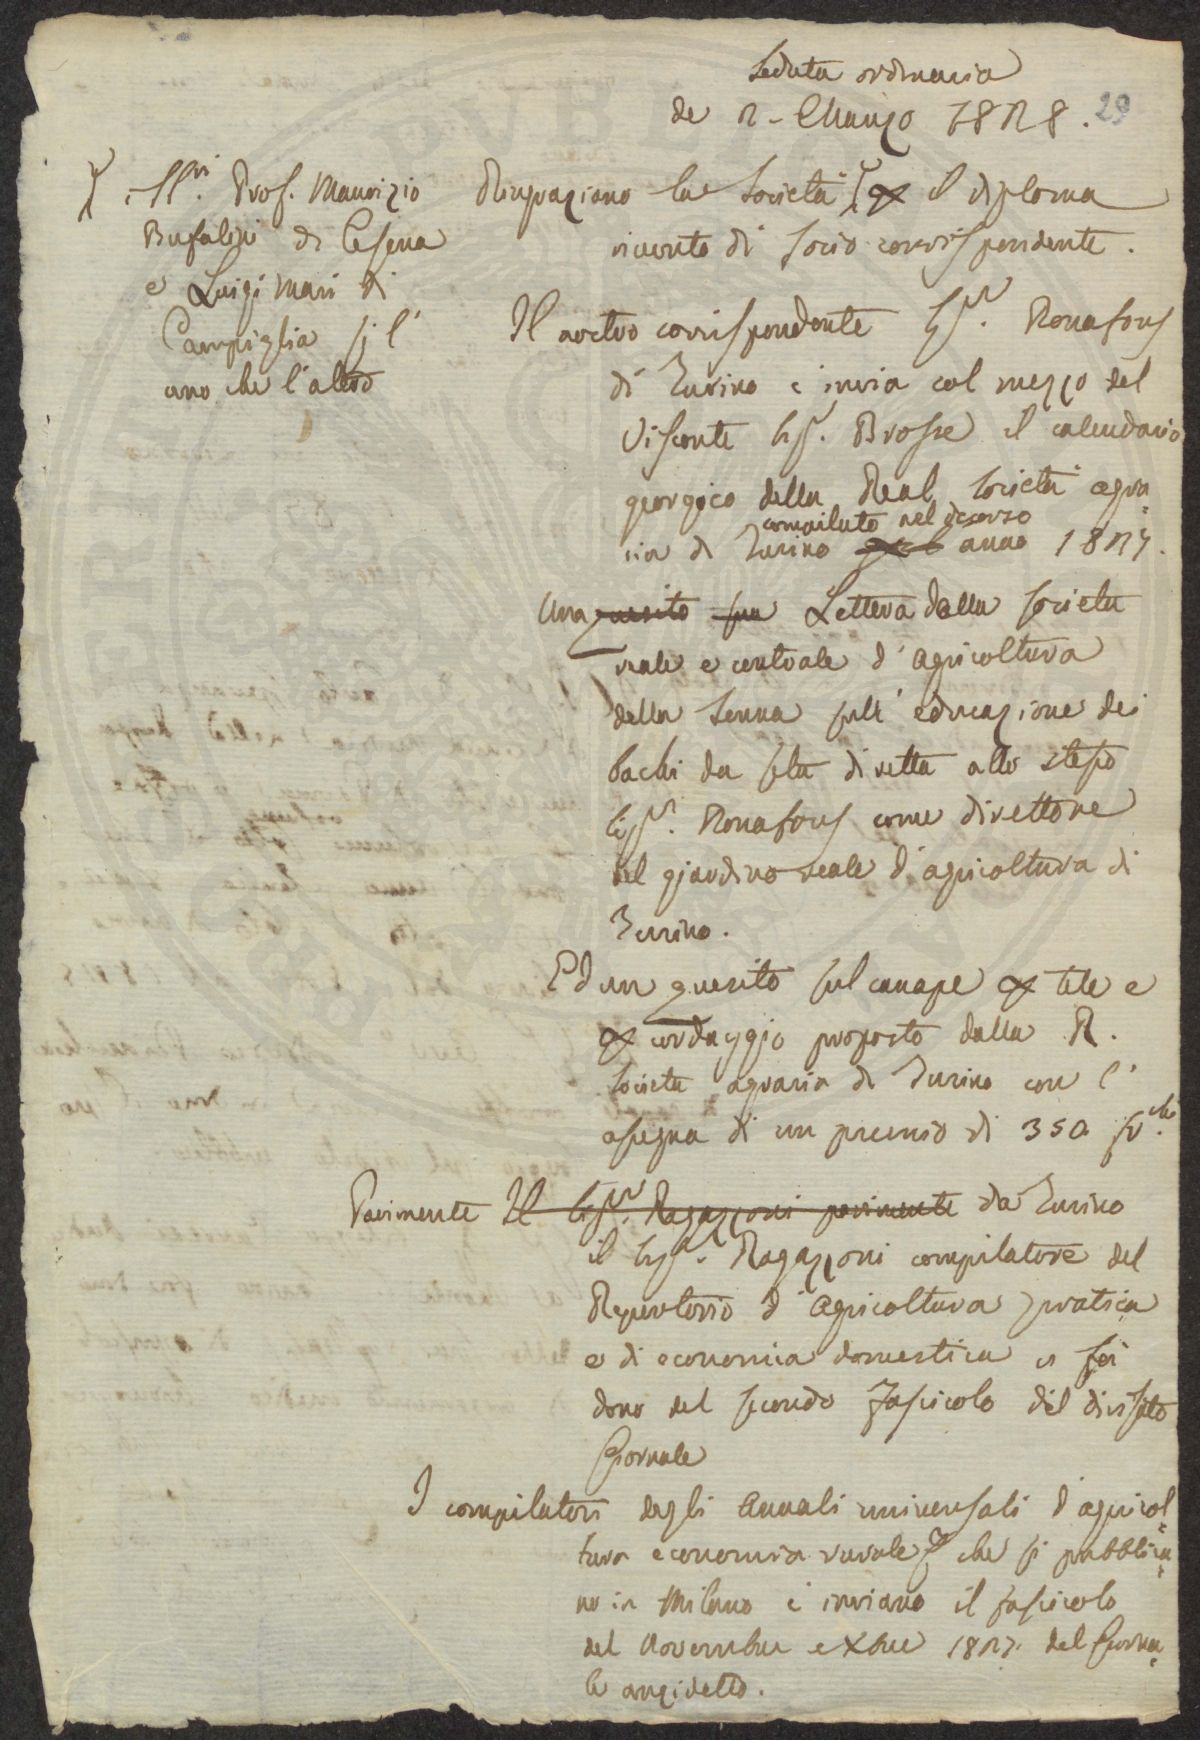 Seduta ordinaria
de 2 - Marzo 1828. 29
SS.ri Prof. Maurizio
Bufalini di Cesena
e Luigi Mari di
Campiglia sì l'
uno che l'altro
Ringraziano la Società p il diploma
ricevuto di socio corrispondente.
Il nostro corrispondente Sig.r Bonafous
di Turino c' invia col mezzo del
Visconte Sig.r Brosse il calendario
georgico della Real Società agra=
ria di Turino compilato nel decorso anno 1827.
Una quesito sua Lettera della società
reale e centrale d' agricoltura
della Senna sull' educazione dei
bachi da seta diretta allo stesso
Sig.r Bonafous come direttore
del giardino reale d' agricoltura di
Turino.
Ed un quesito sul canape p tele e
p cordaggio proposto dalla R.
Società agraria di Turino con l'
assegna di un premio di 350 fr.chi
Parimente Il Sig.r Ragazzoni parimente da Turino
il Sig.r Ragazzoni compilatore del
Repertorio d' Agricoltura pratica
e di economia domestica ci fa
dono del secondo fascicolo del divisato
Giornale
I compilatori degli Annali universali d' agricol=
tura economia rurale che si pubblica=
no in Milano c' inviano il fascicolo
del Novembre e Xbre 1827. del Giorna=
le anzidetto.